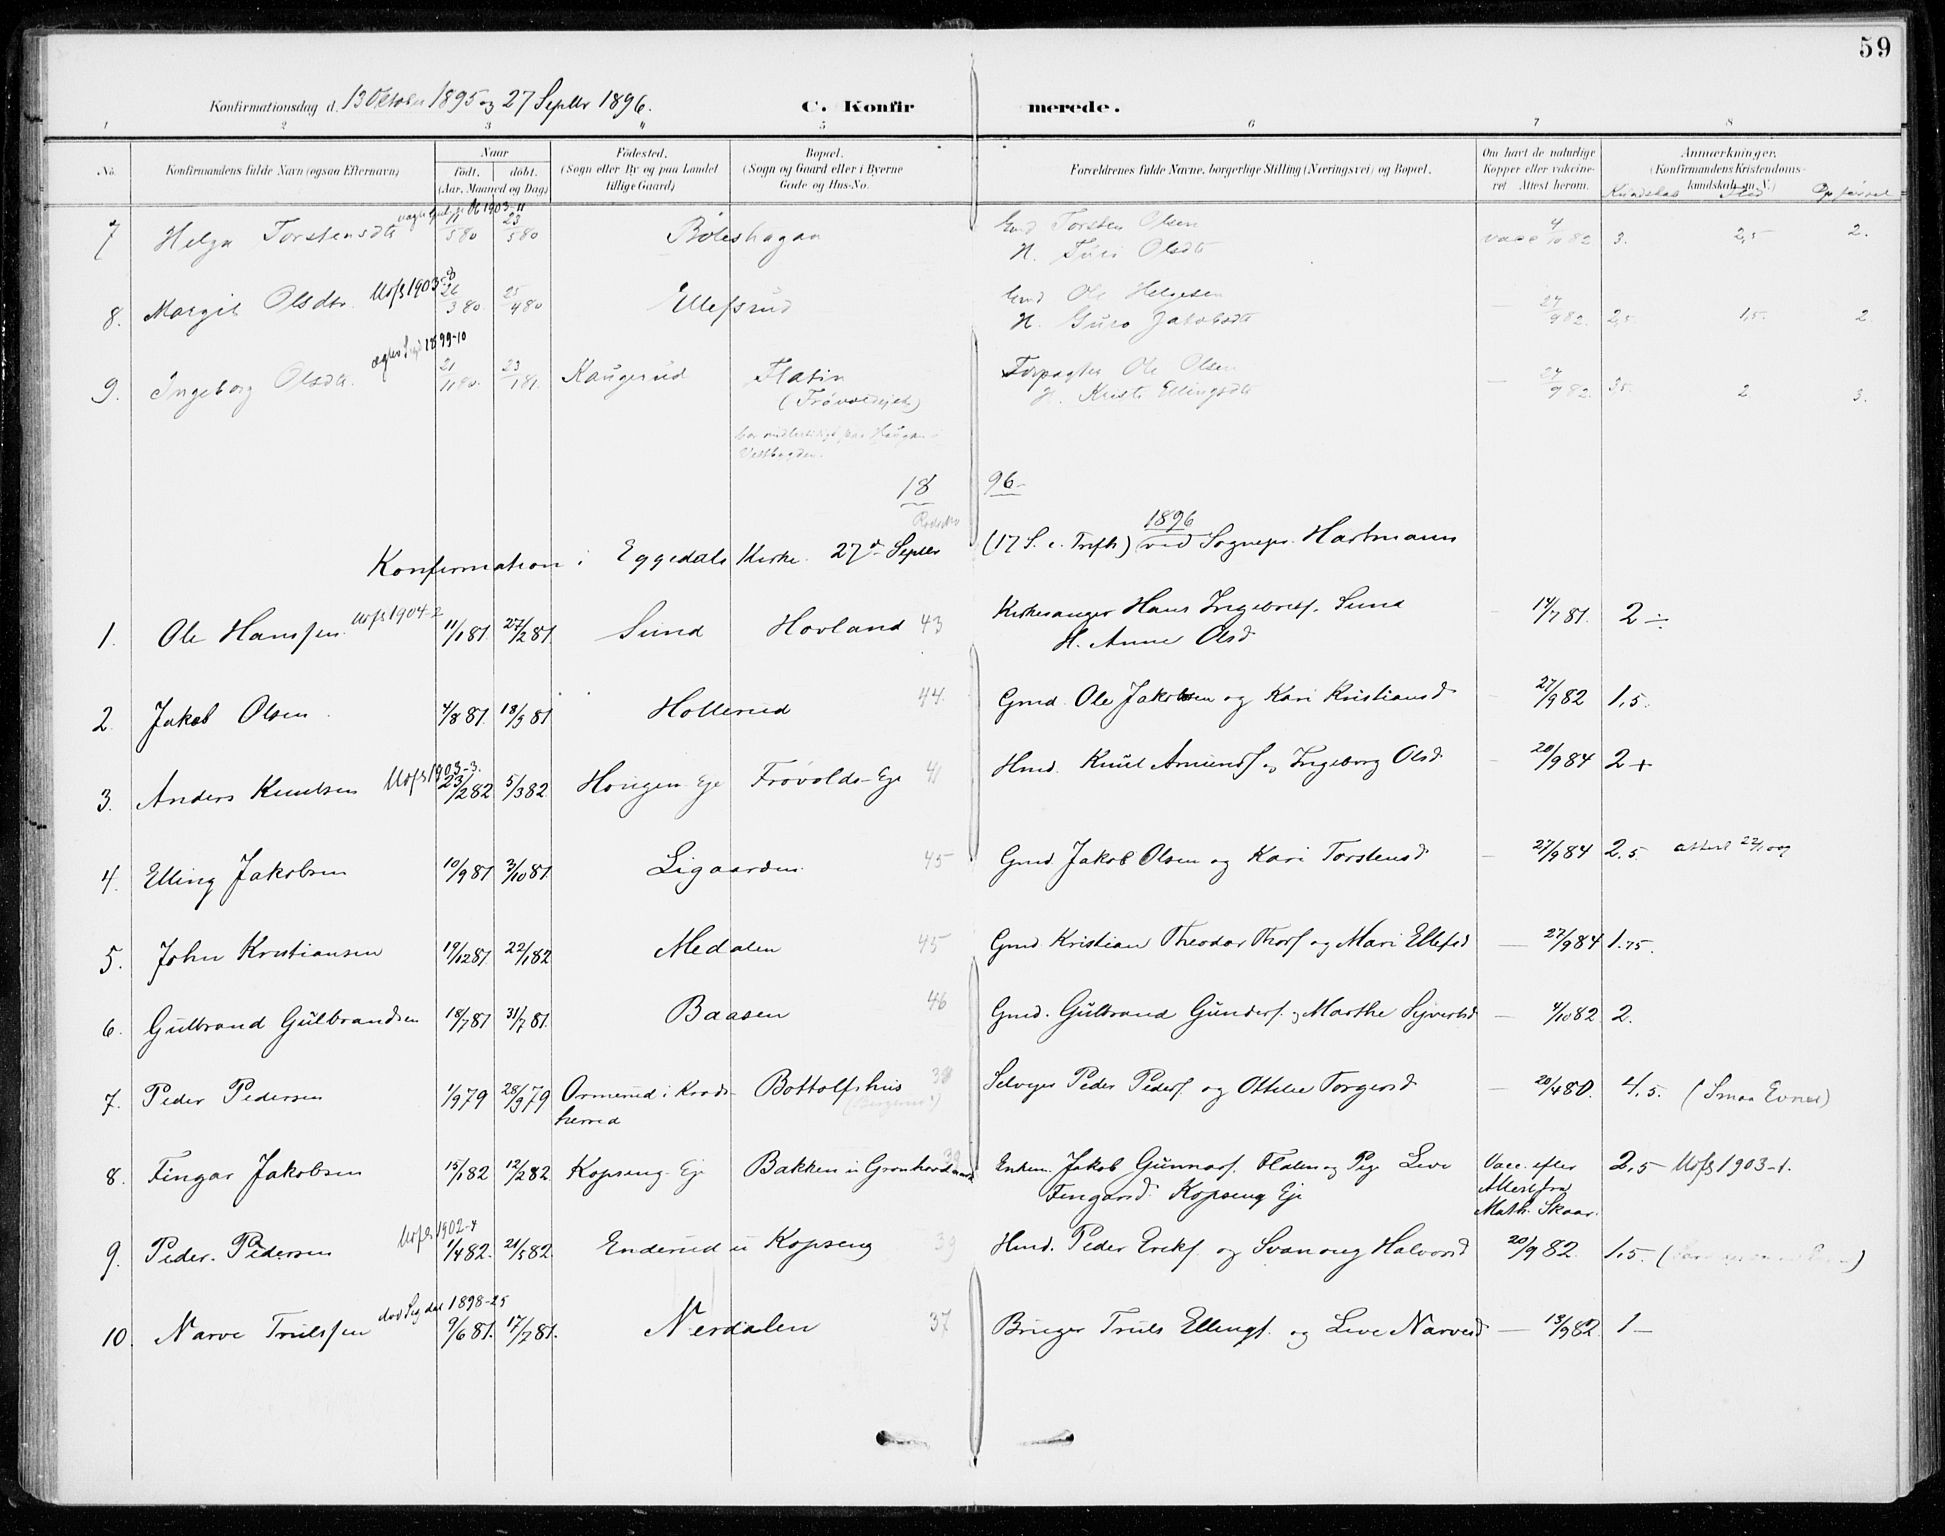 59
Konfirmationsdag d. 13 Oktober 1895 og 27 Septbr 1896. C. Konfirmerede.
1 2 3 4 5 6 7 8
No. Konfirmandens fulde Navn (ogsaa Efternavn) Naar født. døbt. (Aar, Maaned og Dag) Fødested. (Sogn eller By og paa Landet tillige Gaard) Bopæl. (Sogn og Gaard eller i Byerne Gade og Hus-No. Forældrenes fulde Navne, borgerlige Stilling (Næringsvei) og Bopæl. Om havt de naturlige Kopper eller vakcineret Attest herom. Anmærkninger. (Konfirmandens Kristendomskundskab m. V.)
Kundskab Flid Opførsel
7 Helga Torstensdtr 1903-11 23/5 80 Gmd Torsten Olsen
H. Turi Olsdtr vacc 4/10 82 3. 2,5 2.
8. Margit Olsdtr. Uofs 1903-8 26/3 80 25/4 80 Ellefsrud Gmd Ole Helgesen
H. Guro Jakobsdtr 27/9 82. 2,5. 1,5. 2
9. Ingeborg Olsdtr. 1899-10 21/11 80. 23/1 81. Kaugerud Flatin
(Frøvoldseje) Forpagter Ole Olsen
H. Kristi Ellingsdtr 27/9 82. 3,5. 2 3.
18 96-
Konfirmation i Eggedals Kirke. 27de Septbr 1896 (17 S. e. Trefh) ved Sognepr. Hartmann
1. Ole Hanssen. Uofs 1904-2 11/1 81. 27/2 81. Sund Hovland 43 Kirkesanger Hans Ingebrets. Sund
H. Anne Olsd. - 14/7 81. 2 ÷
2. Jakob Olsen. 4/8 81 18/9 81 Hollerud 44. Gmd. Ole Jakobsen og Kari Kristiansd. - 27/9 82 1,5.
3. Anders Knutsen Uofs 1903-3. 23/2 82 5/3 82 Hougen Eje Frøvolds-Eje 41 Hmd. Knut Amunds. og Ingeborg Olsd. - 20/9 84 2 +
4. Elling Jakobsen 10/9 81 3/10 81. Ligaarden. 45 Gmd. Jakob Olsen og Kari Torstensd. - 27/9 84 2,5. attest
5. John Kristiansen 19/12 81. 22/1 82 Medalen 45 Gmd Kristian Theodor Thors. og Mari Ellefsd - 27/9 84 1.75.
6. Gulbrand Gulbrandsen 18/7 81 31/7 81. Baasen 46 Gmd. Gulbrand Gunders. og Marthe Sijvertsd. - 4/10 82 2.
7. Peder Pedersen 1/9 79 28/9 79 Ormerud i Krødsherred Bottolfshus Selvejer Peder Peders. og Ottilie Torgersd. - 20/4 80. 4,5. (Smaa Evner)
8. Fingar Jakobsen 15/1 82 12/2 82 Kopseng Eje Bakken u Grønhovd 39 Enkem. Jakob Gunnars. Flaten og Pige Live
Fingarsd. Kopseng Eje Vacc. efter
Attest fra
Math. Skaar. 2,5 Uofs 1903-1.
9. Peder. Pedersen Uofs 1902-4 1/4 82. 21/5 82. Enderud u Kopseng 39 Hmd. Peder Eriks. og Svanaug Halvorsd. 20/9 82. 1,5.
10. Narve Trulssen død Sigdal 1898-25 9/6 81. 17/7 81. Nerdalen 37 Bruger Truls Ellings. og Live Narvesd - 13/9 82. 1 -